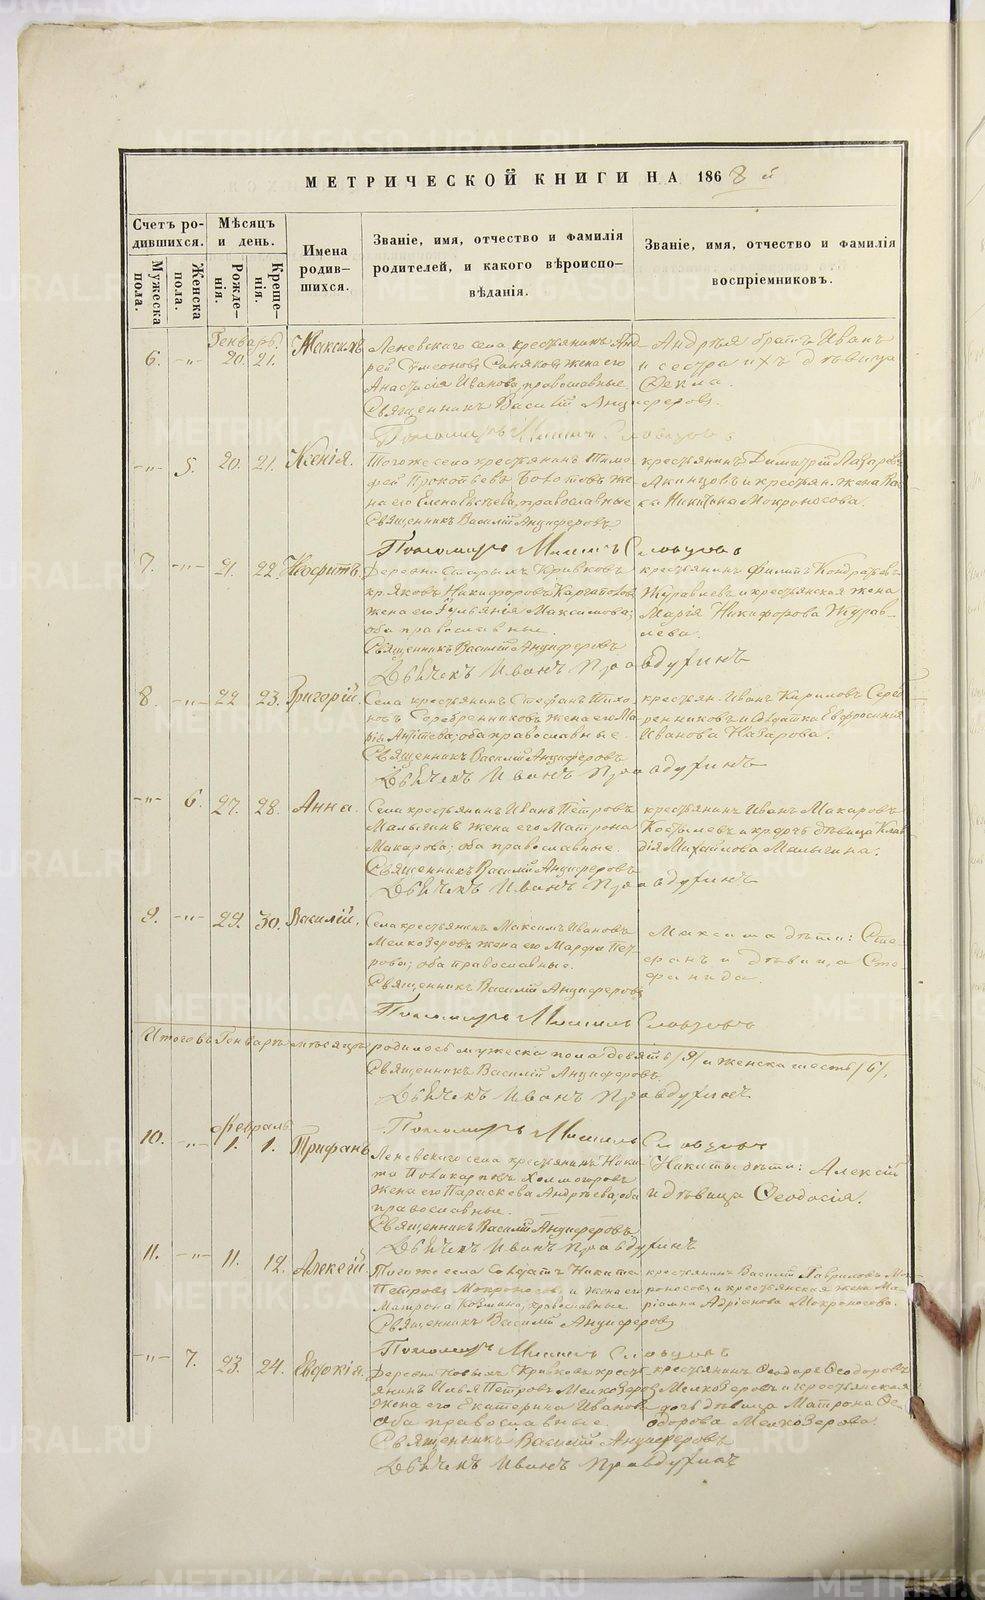 МЕТРИЧЕСКОЙ КНИГИ НА 1868 й
Счетъ ро-
дившихся.
Мужеска
пола.
Женска
пола.
Мѣсяцъ
и день.
Рожде-
нія.
Креще-
нія.
Имена
родив-
шихся.
Званіе, имя, отчество и фамилія
родителей, и какого вѣроиспо-
вѣданія.
Званіе, имя, отчество и фамилія
воспріемниковъ.
Генварь.
6. -"- 20. 21. Максимъ
Леневскаго села крестьянинъ Анд-
рей Сѵмеоновъ жена его
Анастасія Иванова, православные
Священникъ Василій Анциферовъ.
Пономарь Словцовъ
Андрея братъ Иванъ
и сестра ихъ дѣвица
Ѳекла.
-"- 5. 20. 21. Ксенія.
Тогоже села крестьянинъ Тимо-
фей Прокопьевъ же-
на его Елена православные
Священникъ Василій Анциферовъ
Пономарь Словцовъ
крестьянинъ Димитрій Лазаревъ
и крестьян. жена
Никитина Мокроносова.
7. -"- 21. 22.
Деревни Старыхъ Кривковъ
кр. Яковъ Никифоровъ Каргаполовъ
жена его Іульянія Максимова;
оба православные.
Священникъ Василій Анциферовъ
Дьячекъ Иванъ Правдухинъ
крестьянинъ Филипъ Кондратьевъ
Журавлевъ и крестьянская жена
Марія Никифорова Журав-
лева.
8. -"- 22. 23. Григорій.
Села крестьянинъ Стефанъ Тихо-
новъ Серебренниковъ жена его Ма-
рія оба православные.
Священникъ Василій Анциферовъ
Дьячекъ Иванъ Правдухинъ
крестьян. Иванъ Кариловъ Сереб-
ренниковъ и солдатка Евфросинія
Иванова Назарова.
-"- 6. 27. 28. Анна.
Села крестьянинъ Иванъ Петровъ
Малыгинъ жена его Матрона
Макарова; оба православные.
Священникъ Василій Анциферовъ
Дьячекъ Иванъ Правдухинъ
крестьянинъ Иванъ Макаровъ
Костылевъ и дѣвица Клав-
дія Михайлова Малыгина.
9. -"- 29. 30. Василій.
Села крестьянинъ Максимъ Ивановъ
Мелкозеровъ жена его Марфа Пет-
рова; оба православные.
Священникъ Василій Анциферовъ
Пономарь Словцовъ
Максима дѣти: Сте-
фанъ и дѣвица Сте-
фанида.
Итого въ Генварѣ мѣсяцѣ родилось мужеска пола девять /9/ и женска шесть /6/.
Священникъ Василій Анциферовъ
Дьячекъ Иванъ Правдухинъ
Пономарь Словцовъ
Февраль
10. -"- 1. 1. Трифанъ
Леневскаго села крестьянинъ Ники-
та Поликарповъ Холмогоровъ
жена его Параскева Андрѣева, оба
православные.
Священникъ Василій Анциферовъ
Дьячекъ Иванъ Правдухинъ
Никиты дѣти: Алексій
и дѣвица Ѳеодосія.
11. -"- 11. 12. Алексій
Того же села Солдатъ Никита
Петровъ Мокроносовъ и жена его
Матрона Козмина, православные
Священникъ Василій Анциферовъ
Пономарь Словцовъ
крестьянинъ Василій Гавриловъ Мок-
роносовъ и крестьянская жена Ма-
ріамна Адріанова Мокроносова.
-"- 7. 23. 24. Евдокія.
Деревни Новыхъ Кривковъ кресть-
янинъ Илья Петровъ Мелкозеровъ
жена его Екатерина Иванова
оба православные.
Священникъ Василій Анциферовъ
Дьячекъ Иванъ Правдухинъ
крестьянинъ Ѳеодоръ Ѳеодоровъ
Мелкозеровъ и крестьянская
дочь дѣвица Матрона Ѳе-
одорова Мелкозерова.
METRIKI.GASO-URAL.RU